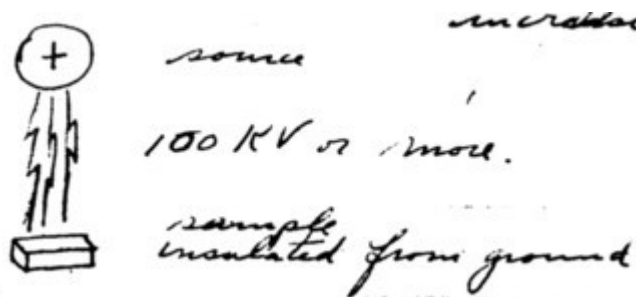 +
source
100 KV or more.
sample
insulated from ground